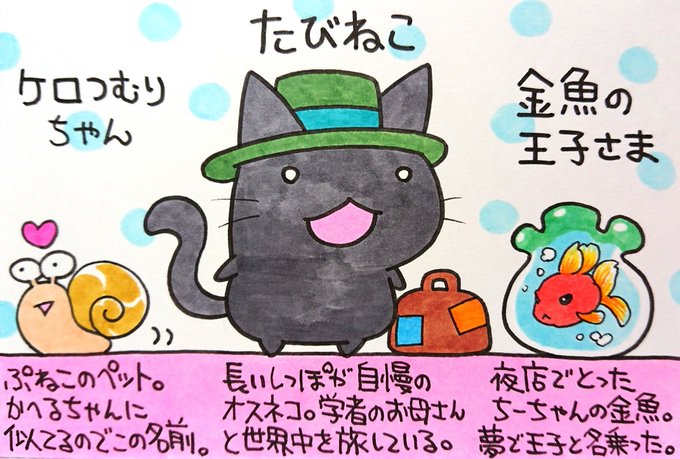 たびねこ
ケロつむり
ちゃん
金魚の
王子さま
ぷねこのペット。
かへるちゃんに
似てるのでこの名前。
長いしっぽが自慢の
オスネコ。学者のお母さん
と世界中を旅している。
夜店でとった
ちーちゃんの金魚。
夢で王子と名乗った。